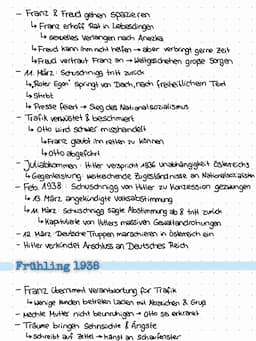 – Franz & Freud gehen spazieren
↳ Franz erhofft Rat in Liebesdingen
↳ sexuelles Verlangen nach Anezka
↳ Freud kann ihm nicht helfen → aber verbringt gerne Zeit
↳ Freud vertraut Franz an → Weltgeschehen große Sorgen
– 11. März: Schuschnigg tritt zurück
↳ „Roter Egon" springt von Dach, nach freiheitlichem Text
↳ Stirbt
↳ Presse feiert → Sieg des Nationalsozialismus
– Trafik verwüstet & beschmiert
↳ Otto wird schwer misshandelt
↳ Franz glaubt ihn retten zu können
↳ Otto abgeführt
– Juliabkommen: Hitler verspricht 1936 Unabhängigkeit Österreichs
↳ Gegenleistung: weitreichende Zugeständnisse an Nationalsozialisten
– Feb. 1938: Schuschnigg von Hitler zu Konzession gezwungen
↳ 13. März angekündigte Volksabstimmung
↳ 11. März: Schuschnigg sagte Abstimmung ab & tritt zurück
↳ Kapitulierte von Hitlers massiven Gewaltandrohungen
– 12. März Deutsche Truppen marschieren in Österreich ein
– Hitler verkündet Anschluss an Deutsches Reich
Frühling 1938
– Franz übernimmt Verantwortung für Trafik
↳ Wenige Kunden betreten Laden mit Abzeichen & Gruß
– Möchte Mutter nicht beunruhigen → Otto sei erkrankt
– Träume bringen Sehnsüchte & Ängste
↳ schreibt auf Zettel → hängt an Schaufenster